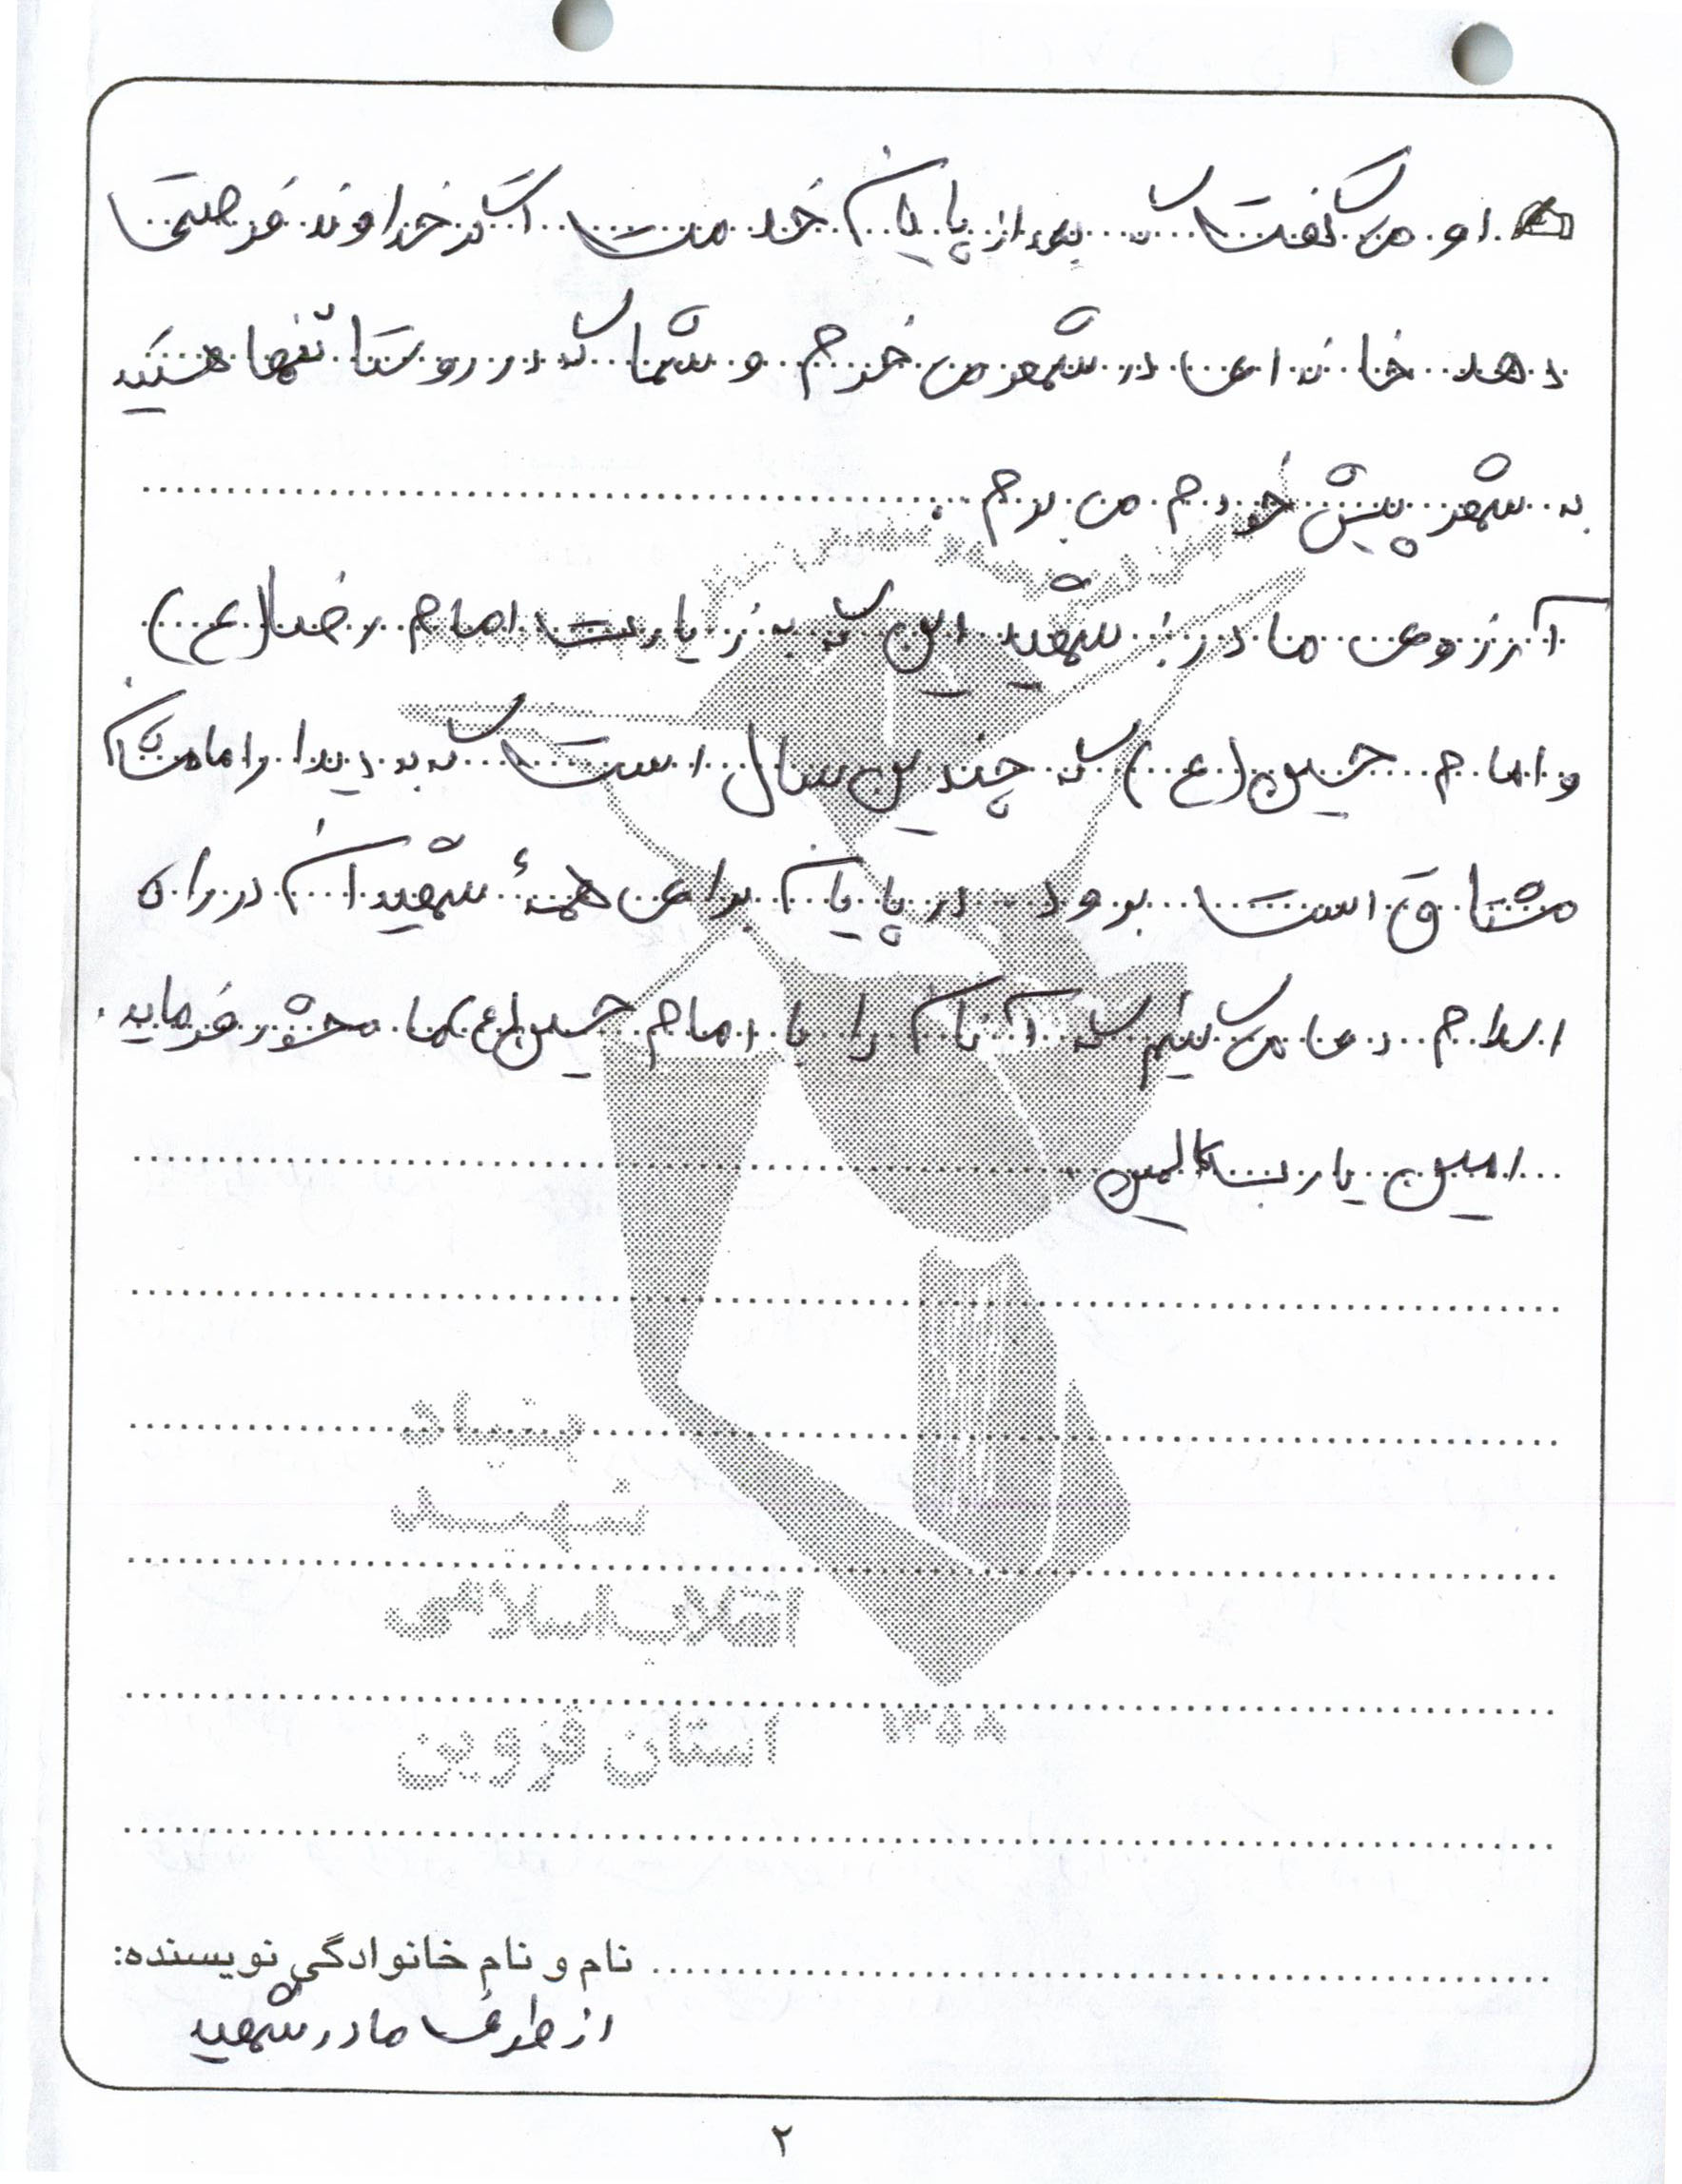 او می گفت که بعد از پایان خدمت اگر خداوند فرصتی
دهد خانه ای در شهر می خرم و شما که در روستا تنها هستید
به شهر پیش خودم می برم.
آرزوی مادر: شهید این که به زیارت امام رضا(ع)
و امام حسین(ع) که چندین سال است که به دیدار امامش
مشتاق است برود در پایان برای همهٔ شهیدان در راه
اسلام دعا می کنیم که آنان را با امام حسین(ع) ما محشور فرماید.
امین یا رب العالمین
بنیاد
شهید
انقلاب اسلامی
استان قزوین ۱۳۸۸
نام و نام خانوادگی نویسنده:
از طرف مادر شهید
۲